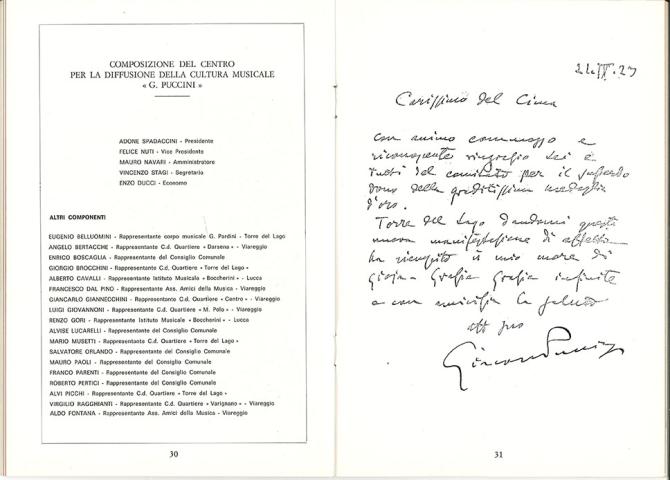 COMPOSIZIONE DEL CENTRO
PER LA DIFFUSIONE DELLA CULTURA MUSICALE
« G. PUCCINI »
ADONE SPADACCINI - Presidente
FELICE NUTI - Vice Presidente
MAURO NAVARI - Amministratore
VINCENZO STAGI - Segretario
ENZO DUCCI - Economo
ALTRI COMPONENTI
EUGENIO BELLUOMINI - Rappresentante corpo musicale G. Pardini - Torre del Lago
ANGELO BERTACCHE - Rappresentante C.d. Quartiere « Darsena » - Viareggio
ENRICO BOSCAGLIA - Rappresentante del Consiglio Comunale
GIORGIO BROCCHINI - Rappresentante C.d. Quartiere « Torre del Lago »
ALBERTO CAVALLI - Rappresentante Istituto Musicale « Boccherini » - Lucca
FRANCESCO DAL PINO - Rappresentante Ass. Amici della Musica - Viareggio
GIANCARLO GIANNECCHINI - Rappresentante C.d. Quartiere « Centro » - Viareggio
LUIGI GIOVANNONI - Rappresentante C.d. Quartiere « M. Polo » - Viareggio
RENZO GORI - Rappresentante Istituto Musicale « Boccherini » - Lucca
ALVISE LUCARELLI - Rappresentante del Consiglio Comunale
MARIO MUSETTI - Rappresentante C.d. Quartiere « Torre del Lago »
SALVATORE ORLANDO - Rappresentante del Consiglio Comunale
MAURO PAOLI - Rappresentante del Consiglio Comunale
FRANCO PARENTI - Rappresentante del Consiglio Comunale
ROBERTO PERTICI - Rappresentante del Consiglio Comunale
ALVI PICCHI - Rappresentante C.d. Quartiere « Torre del Lago »
VIRGILIO RAGGHIANTI - Rappresentante C.d. Quartiere « Varignano » - Viareggio
ALDO FONTANA - Rappresentante Ass. Amici della Musica - Viareggio
30
Carissimo del Cima
con animo commosso e
riconoscente ringrazio Lei e
tutti del comitato per il
dono della graditissima medaglia
d'oro.
Torre del Lago dandomi questa
nuova manifestazione di affetto
ha riempito il mio cuore di
Gioia - Grazie Grazie infinite
e con amicizia la saluto
aff suo
Giacomo Puccini
31